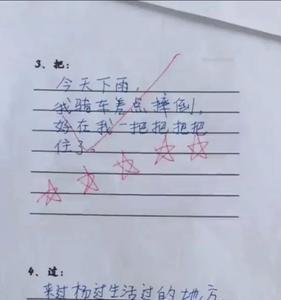 3、把:
今天下雨,
我骑车差点摔倒,
好在我一把把把把
住了。
4、过:
来过杨过生活过的地方